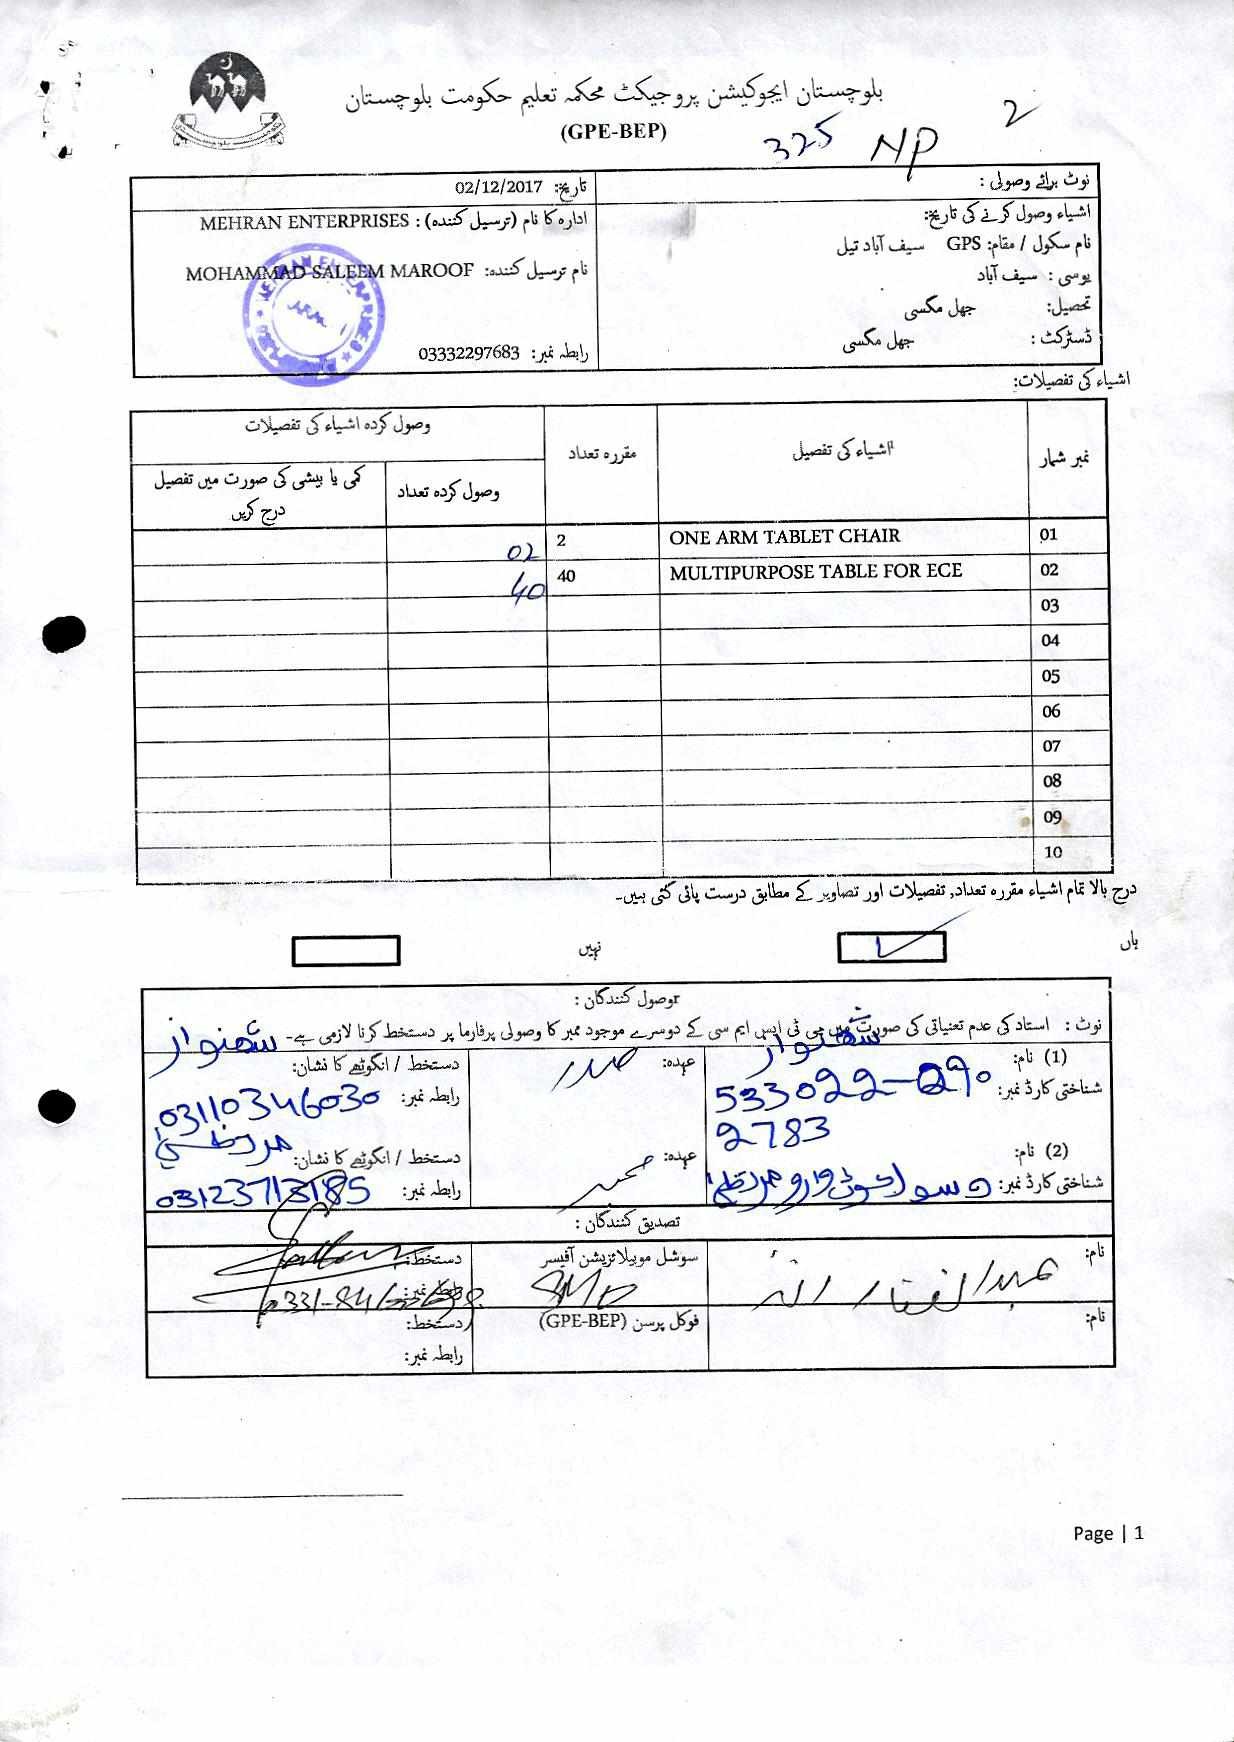 بلوچستان ایجوکیشن پروجیکٹ محکمہ تعلیم حکومت بلوچستان
(GPE-BEP)
325 NP 2
نوٹ برائے وصولی :
تاریخ: 02/12/2017
اشیاء وصول کرنے کی تاریخ:
ادارہ کا نام (ترسیل کنندہ) : MEHRAN ENTERPRISES
نام سکول / مقام: GPS سیف آباد تیل
نام ترسیل کنندہ: MOHAMMAD SALEEM MAROOF
یوسی : سیف آباد
تحصیل: جھل مگسی
ڈسٹرکٹ : جھل مگسی
رابطہ نمبر: 03332297683
اشیاء کی تفصیلات:
نمبر شمار اشیاء کی تفصیل مقررہ تعداد وصول کردہ اشیاء کی تفصیلات
وصول کردہ تعداد کمی یا بیشی کی صورت میں تفصیل درج کریں
01 ONE ARM TABLET CHAIR 2 02
02 MULTIPURPOSE TABLE FOR ECE 40 40
03
04
05
06
07
08
09
10
درج بالا تمام اشیاء مقررہ تعداد, تفصیلات اور تصاویر کے مطابق درست پائی گئی ہیں۔
ہاں نہیں
وصول کنندگان :
نوٹ : استاد کی عدم تعنیاتی کی صورت میں پی ٹی ایس ایم سی کے دوسرے موجود ممبر کا وصولی پرفارما پر دستخط کرنا لازمی ہے۔
(1) نام: شھنواز عہدہ: صدر دستخط / انگوٹھے کا نشان: شھنواز
شناختی کارڈ نمبر: 533022-0290
2783
رابطہ نمبر: 03110346030
(2) نام: عہدہ: ممبر دستخط / انگوٹھے کا نشان:
شناختی کارڈ نمبر: رابطہ نمبر: 03123713185
تصدیق کنندگان :
نام: عبدالغفار سوشل موبیلائزیشن آفیسر SMO دستخط:
رابطہ نمبر:
نام: فوکل پرسن (GPE-BEP) دستخط:
رابطہ نمبر:
Page | 1